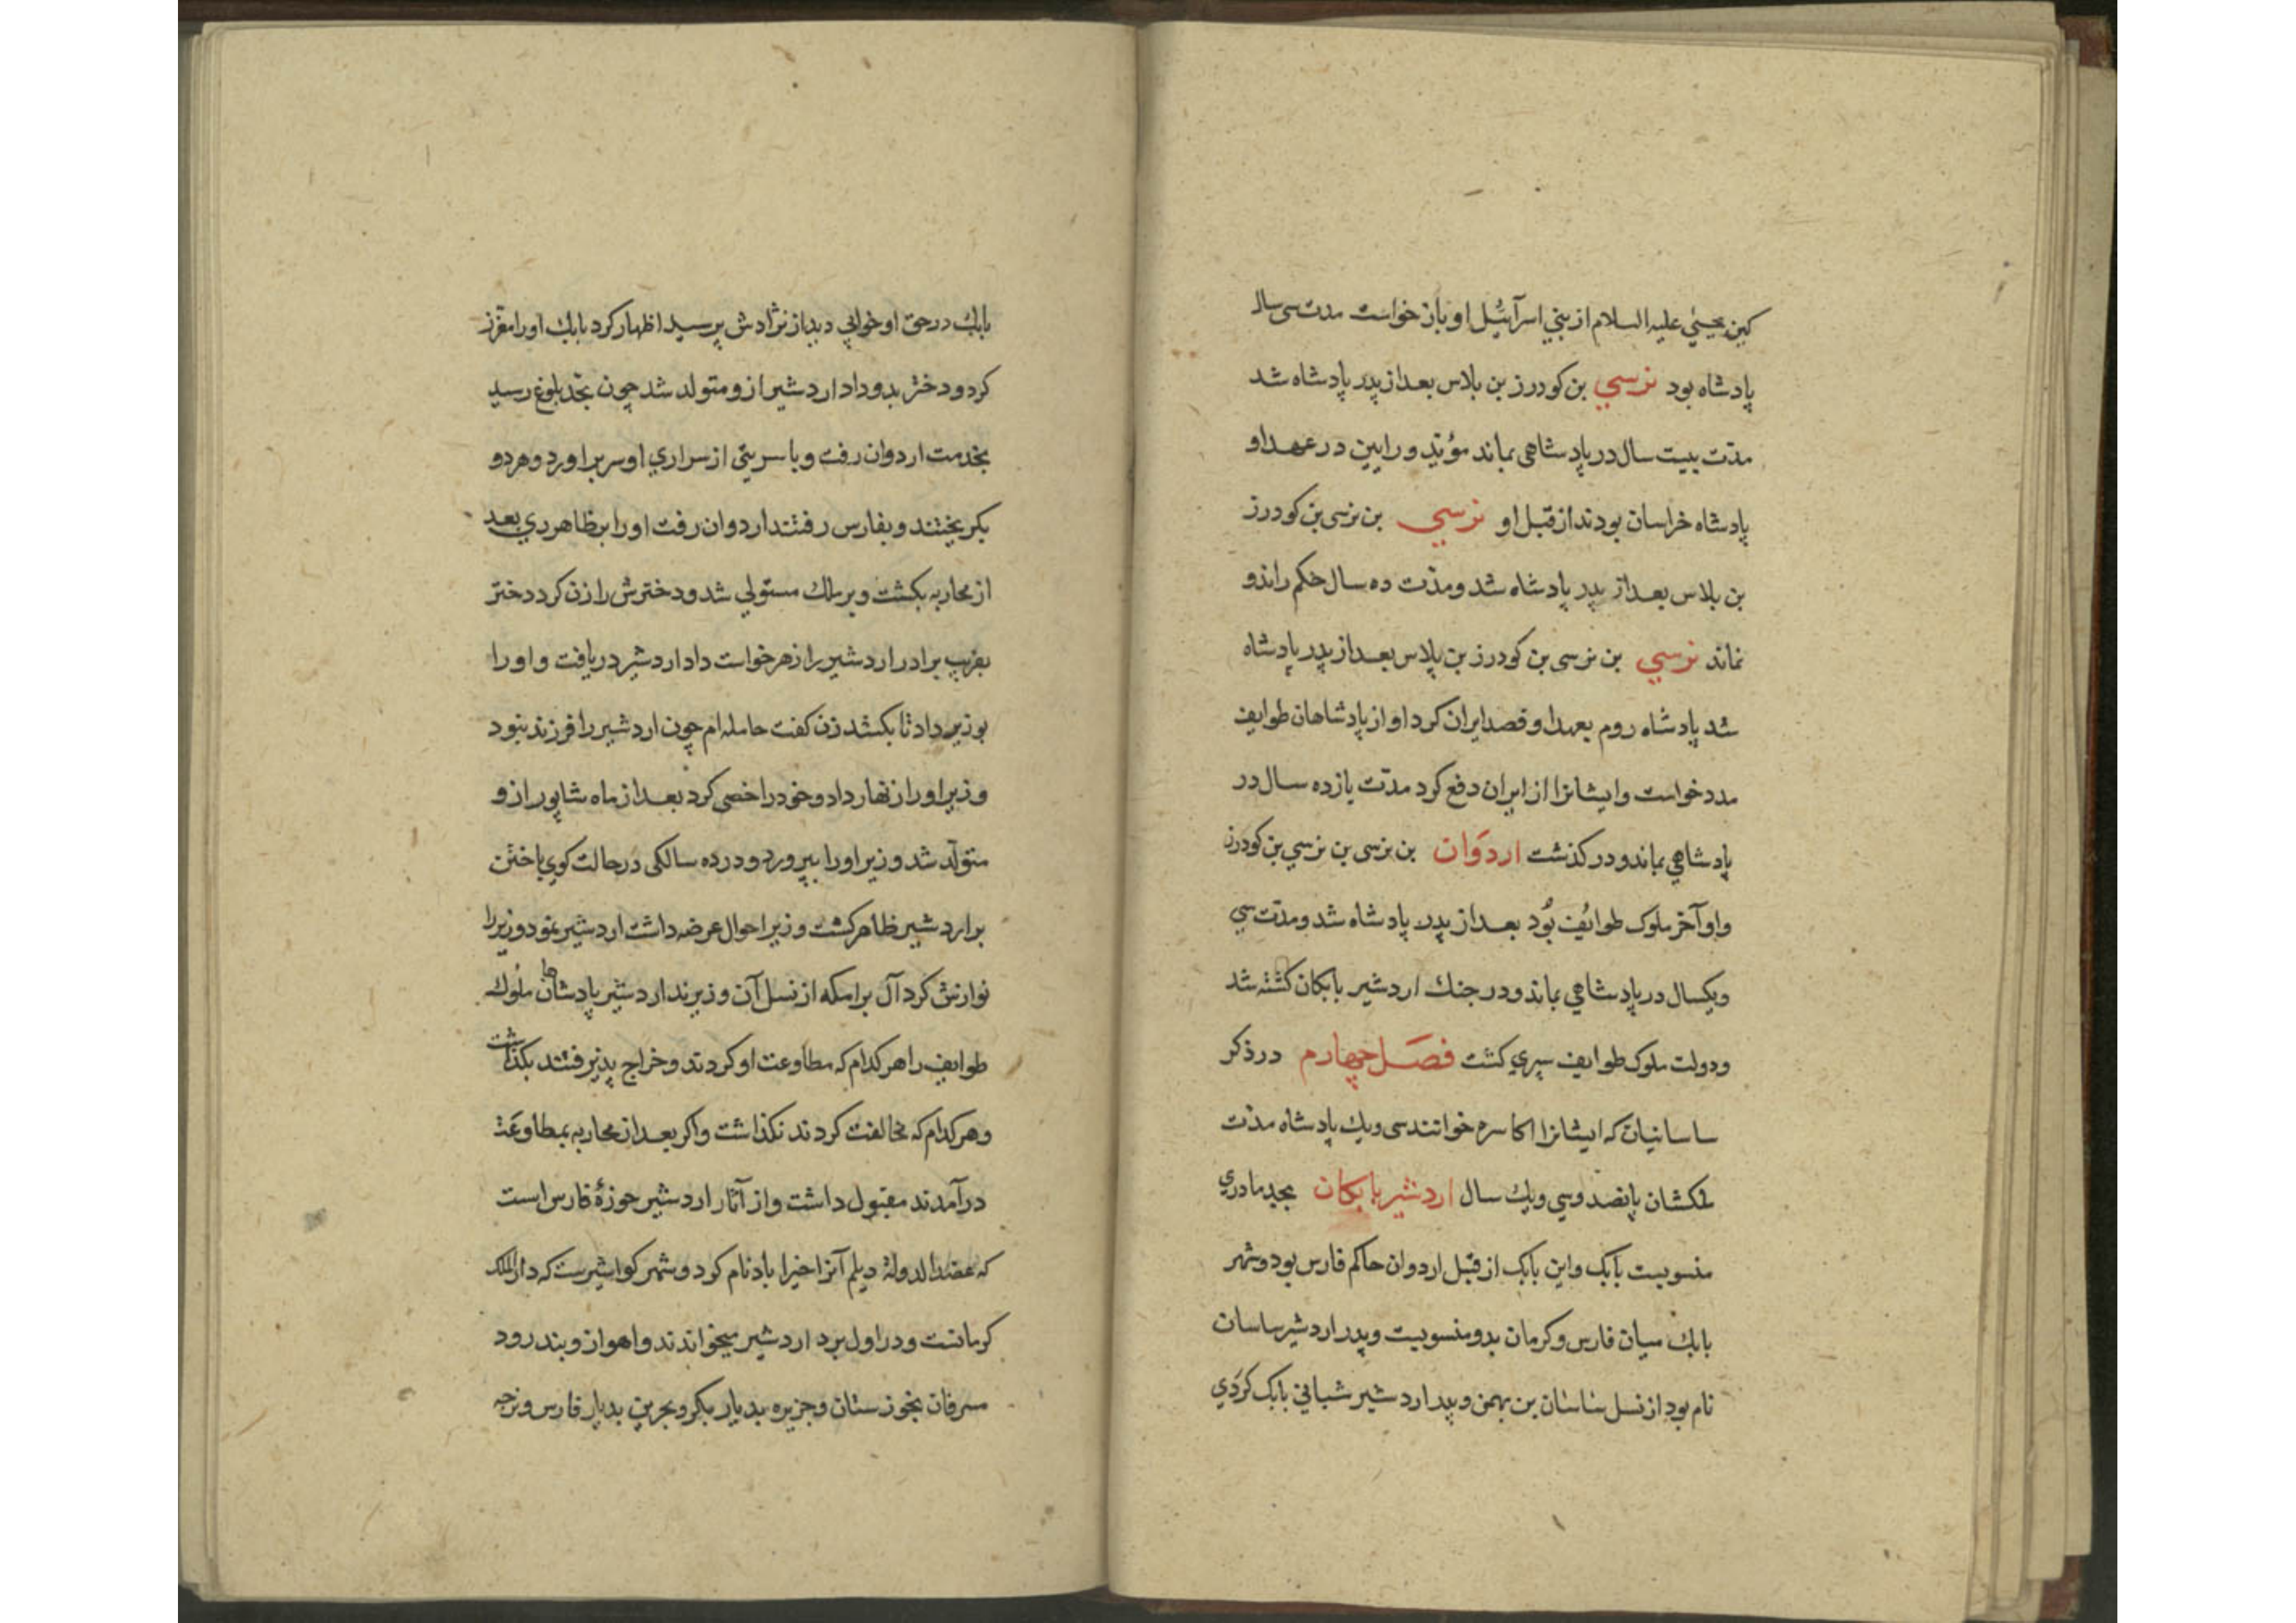 کین یحیی علیه السلام از بنی اسرآئیل او باز خواست مدت سی سال
پادشاه بود نرسی بن کودرز بن بلاس بعد از پدر پادشاه شد
مدّت بیست سال در پادشاهی بماند مؤبد و رامین در عهد او
پادشاه خراسان بودند از قبل او نرسی بن نرسی بن کودرز
بن بلاس بعد از پدر پادشاه شد و مدّت ده سال حکم راند و
نماند نرسی بن نرسی بن کودرز بن پلاس بعد از پدر پادشاه
شد پادشاه روم بعهد او قصد ایران کرد او از پادشاهان طوایف
مدد خواست و ایشانرا از ایران دفع کرد مدّت یازده سال در
پادشاهی بماند و در کذشت اردوان بن نرسی بن نرسی بن کودرز
و او آخر ملوک طوایف بود بعد از پدر پادشاه شد و مدّت سی
و یکسال در پادشاهی بماند و در جنک اردشیر بابکان کشته شد
و دولت ملوک طوایف سپری کشت فصل چهارم در ذکر
ساسانیان که ایشانرا اکاسره خوانند سی و یک پادشاه مدّت
ملکشان پانصد و سی و یک سال اردشیر بابکان بجد مادری
منسوبست بابک و این بابک از قبل اردوان حاکم فارس بود و شهر
بابک میان فارس و کرمان بدو منسوبست و پدر اردشیر ساسان
نام بود از نسل ساسان بن بهمن و پدر اردشیر شبانی بابک کردی
بابک در حق او خوابی دید از نژادش پرسید اظهار کرد بابک او را معزز
کرد و دختر بدو داد اردشیر ازو متولد شد چون بحد بلوغ رسید
بخدمت اردوان رفت و با سریتی از سراری او سر براورد و هر دو
بکریختند و بفارس رفتند اردوان رفت او را بظاهر ری بعد
از محاربه بکشت و بر ملک مستولی شد و دخترش را زن کرد دختر
بفریب برادر اردشیر را زهر خواست داد اردشیر دریافت و او را
بوزیر داد تا بکشد زن کفت حامله ام چون اردشیر را فرزند نبود
وزیر او را زنهار داد و خود را خصی کرد بعد از ماه شاپور ازو
متولّد شد وزیر او را بپرورد و در ده سالکی در حالت کوی باختن
بر اردشیر ظاهر کشت وزیر احوال عرضه داشت اردشیر بنمود وزیر را
نوازش کرد آل برامکه از نسل آن وزیرند اردشیر پادشاهان ملوک
طوایف را هر کدام که مطاوعت او کردند و خراج پذیرفتند بکذاشت
و هر کدام که مخالفت کردند نکذاشت و اکر بعد از محاربه بمطاوعت
درآمدند مقبول داشت و از آثار اردشیر حوزۀ فارس است
که عضد الدولۀ دیلم آنرا اخیرا باد نام کود و شهر کواشیرست که دار الملک
کرمانست و در اول برد اردشیر میخواندند و اهواز و بند رود
مسرقان بخوزستان و جزیره بدیار بکر و بحرین بدیار فارس و